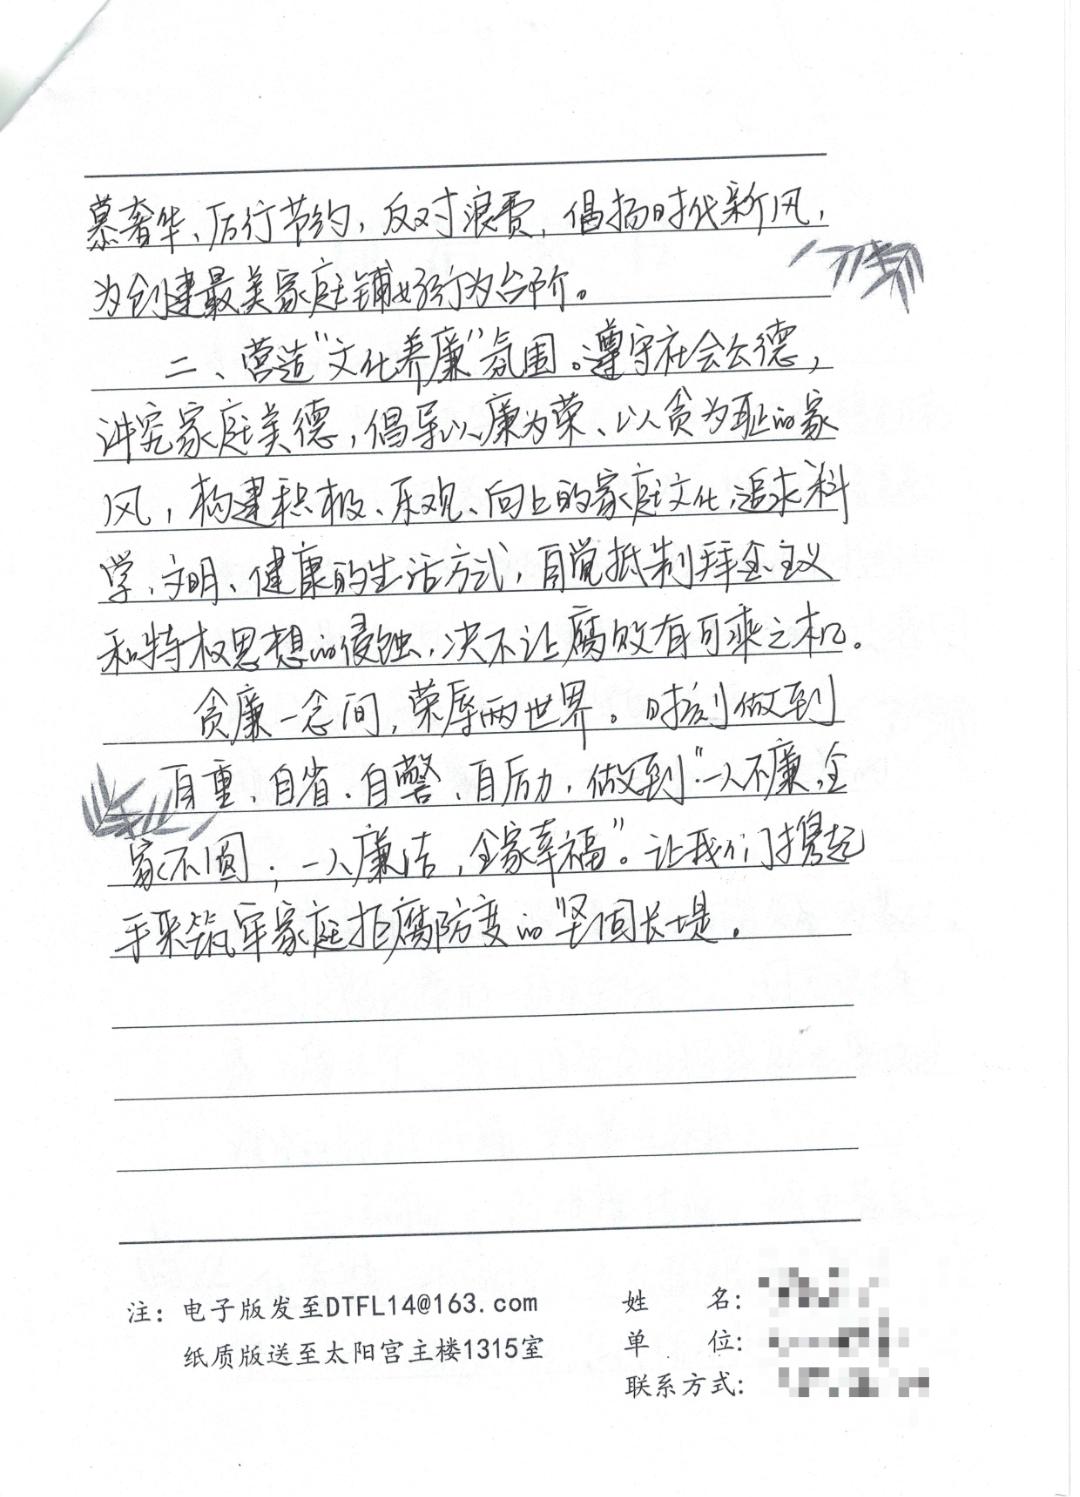 慕奢华、厉行节约，反对浪费，倡扬时代新风，
为创建最美家庭铺好行为台阶。
二、营造“文化养廉”氛围。遵守社会公德，
讲究家庭美德，倡导以廉为荣、以贪为耻的家
风，构建积极、乐观、向上的家庭文化，追求科
学、文明、健康的生活方式，自觉抵制拜金主义
和特权思想的侵蚀，决不让腐败有可乘之机。
贪廉一念间，荣辱两世界。时刻做到
自重、自省、自警、自厉力，做到“一人不廉，全
家不圆；一人廉洁，全家幸福”。让我们携起
手来筑牢家庭拒腐防变的坚固长堤。
注：电子版发至DTFL14@163.com
纸质版送至太阳宫主楼1315室
姓 名：
单 位：
联系方式：